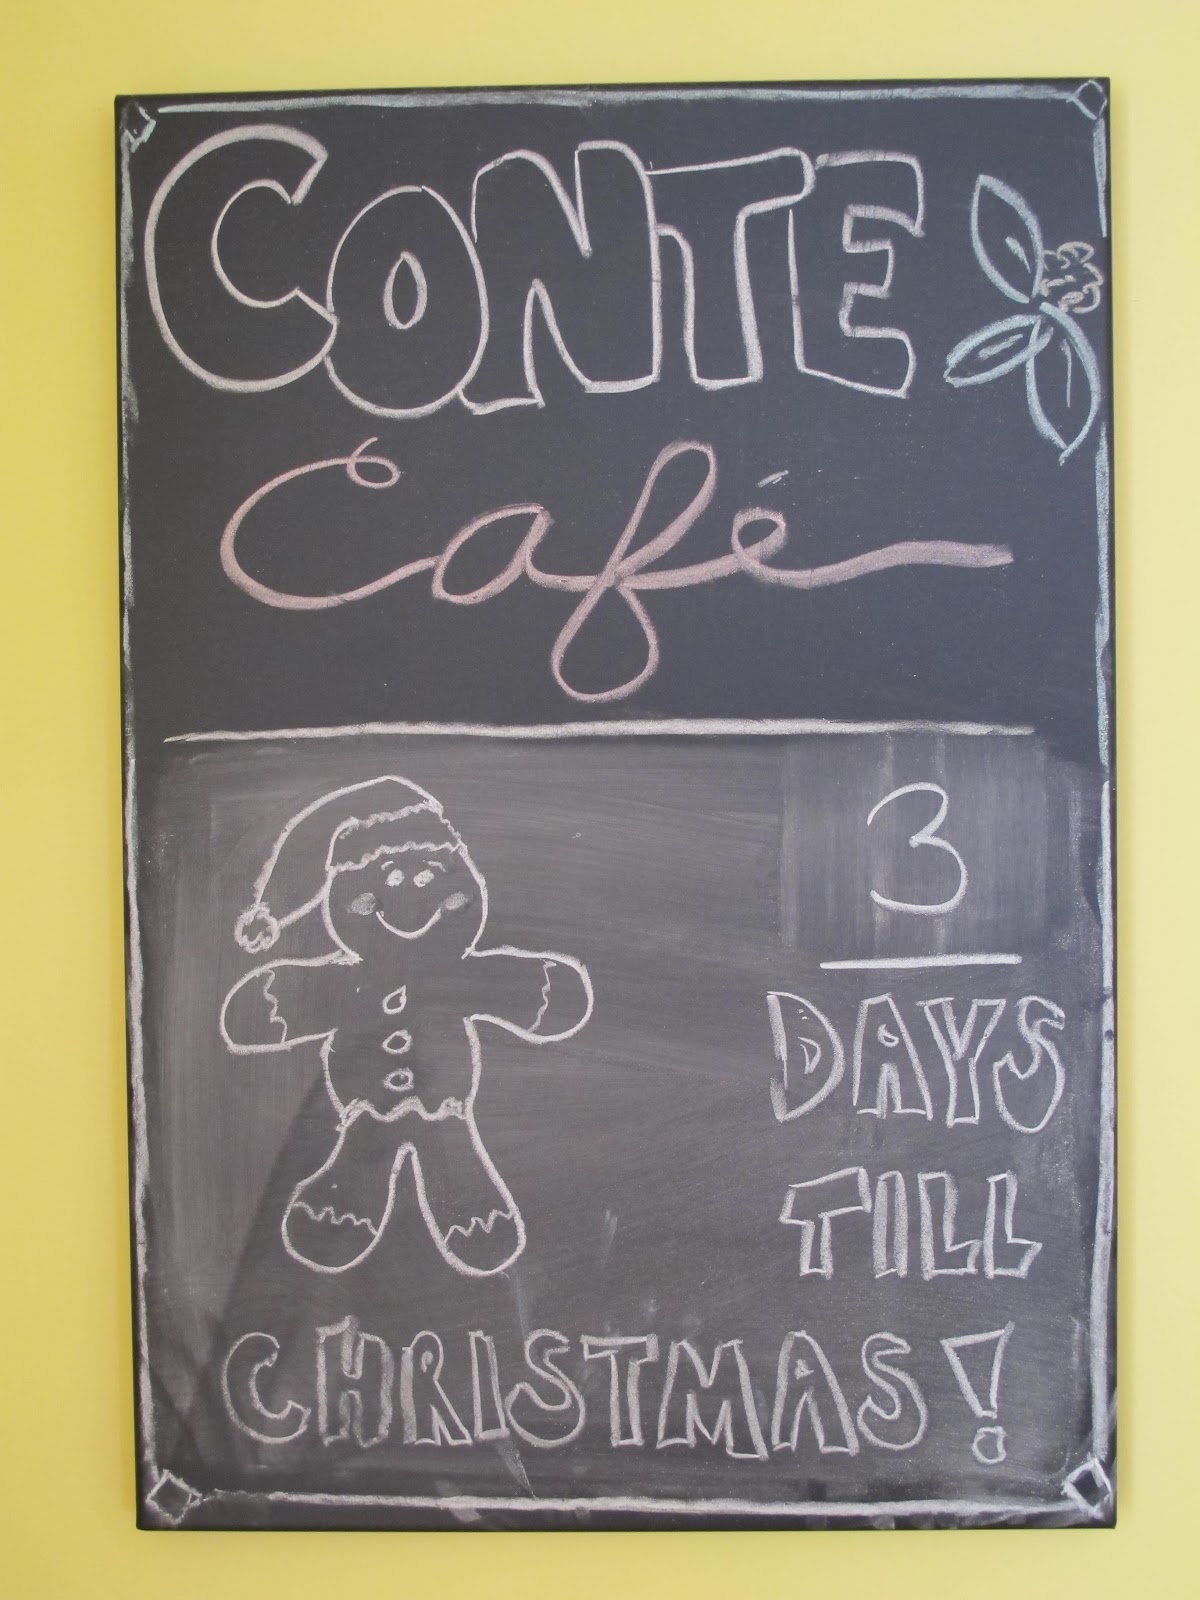 CONTE
Café
3
DAYS
TILL
CHRISTMAS!